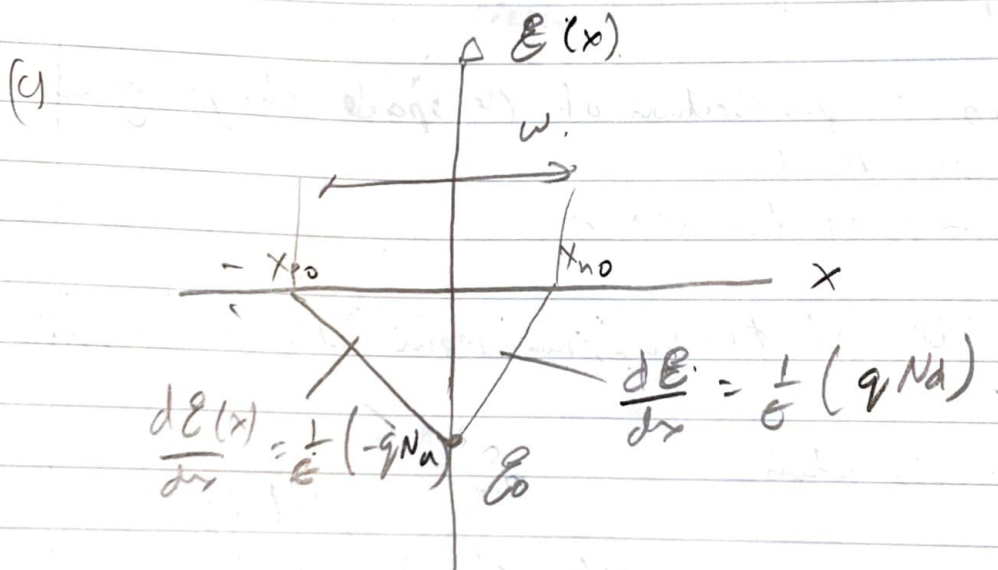 (c)
ℰ(x)
w.
- xp0
xn0
x
dℰ(x)/dx = 1/ϵ (-qNa)
dℰ/dx = 1/ϵ (qNd)
ℰ0